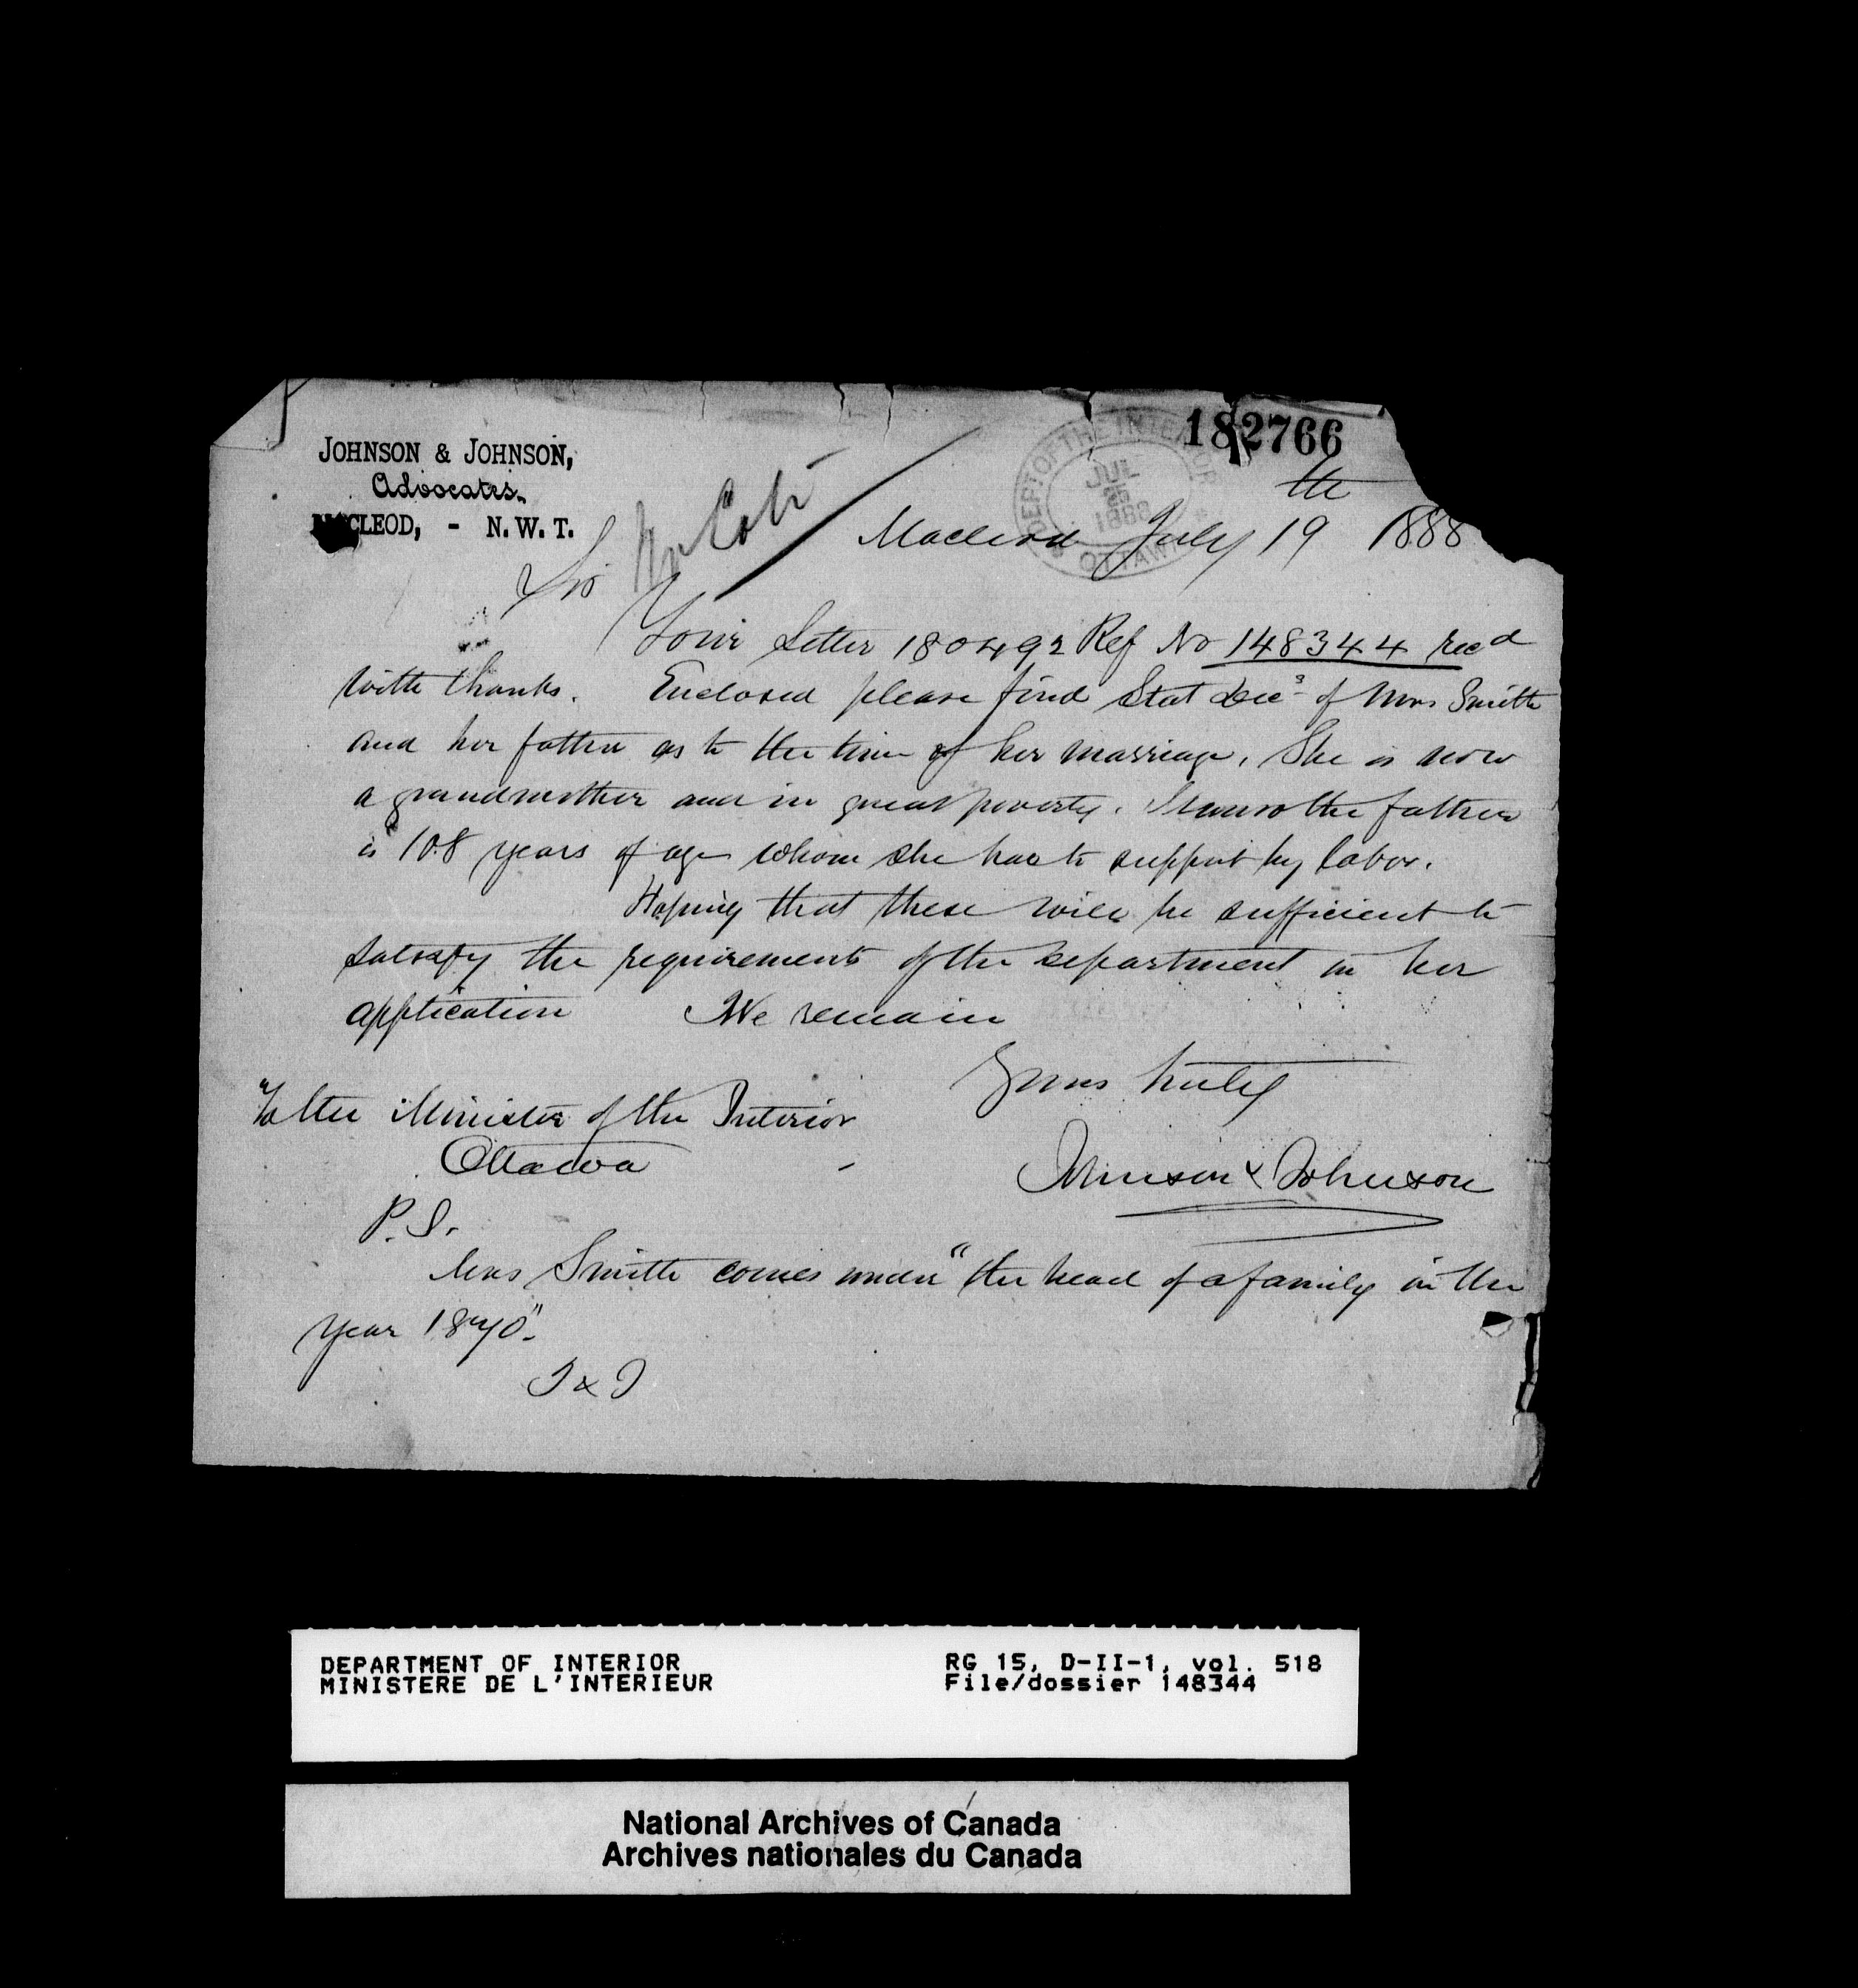 182766
JOHNSON & JOHNSON,
Advocates.
MACLEOD, - N.W.T.
DEPT OF THE INTERIOR
JUL
1888
OTTAWA
Mr Coté
Macleod July 19th 1888
Sir
Your letter 180492 Ref No 148344 recd
with thanks. Enclosed please find Stat Decs of Mrs Smith
and her father as to the time of her marriage. She is now
a grandmother and in great poverty. the father
is 108 years of age whom she has to support by labor.
Hoping that these will be sufficient to
satisfy the requirements of the department in her
application We remain
Yours truly
To the Minister of the Interior
Ottawa
Johnson & Johnson
P.S.
Mrs Smith comes under "the head of a family in the
year 1870".
J & J
DEPARTMENT OF INTERIOR
MINISTERE DE L'INTERIEUR
RG 15, D-II-1, vol. 518
File/dossier 148344
National Archives of Canada
Archives nationales du Canada